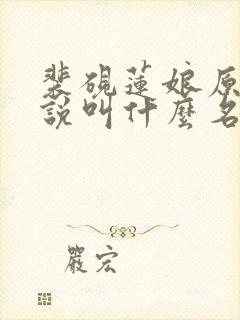 裴硯蓮娘原
說叫什麼名
嚴宏